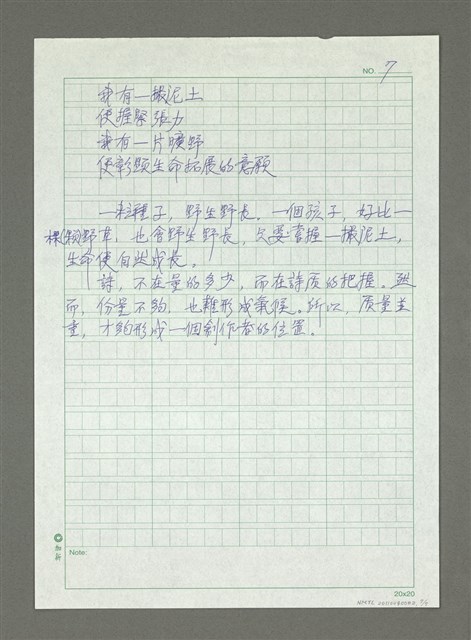 NO. 7
我有一撮泥土
便握緊張力
我有一片曠野
便彰顯生命拓展的意願
一粒種子，野生野長。一個孩子，好比一
棵野草，也會野生野長，只要掌握一撮泥土，
生命便自然成長。
詩，不在量的多少，而在詩质的把握。然
而，份量不夠，也難形成氣候。所以，质量並
重，才夠形成一個創作者的位置。
Note:
20x20